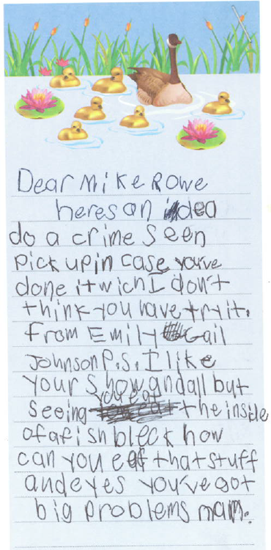 Dear Mike Rowe
heres an idea
do a crime seen
pick up in case you've
done it wich I don't
think you have try it.
from Emily Gail
Johnson P.S. I like
your show and all but
seeing you eat the inside
of a fish bleck how
can you eat that stuff
and eyes you've got
big problems man.